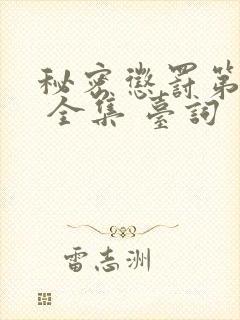 秘密懲罰第
全集 臺詞
雷志洲